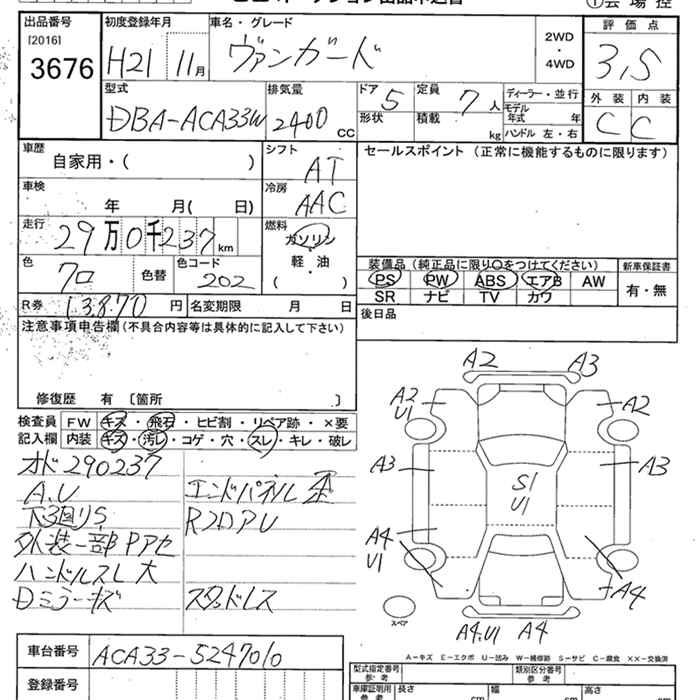 出品番号 初度登録年月 車名・グレード 評価点
[2016]
3676 H21 11月 ヴァンガード 2WD・4WD 3,5
型式 排気量 ドア 5 定員 7人 ディーラー・並行 外装 内装
DBA-ACA33W 2400cc 形状 積載 kg モデル年式 年 C C
ハンドル 左・右
車歴 シフト セールスポイント (正常に機能するものに限ります)
自家用・( ) AT
車検 冷房
年 月( 日) AAC
走行 燃料
29万0千237km ガソリン
軽・油
( )
色 クロ 色替 色コード 202
装備品 (純正品に限り○をつけてください) 新車保証書
PS PW ABS エアB AW 有・無
SR ナビ TV カワ
R券 13870円 名変期限 月 日 後日品
注意事項申告欄 (不具合内容等は具体的に記入して下さい)
修復歴 有 〔箇所 〕
検査員 FW キズ・飛石・ヒビ割・リペア跡・×要
記入欄 内装 キズ・汚レ・コゲ・穴・スレ・キレ・破レ
オド290237
A.U エンドパネル歪
下3回りS RフロアU
外装一部Pアセ
ハンドルスレ大
Dミラーキズ スタッドレス
A2 A3
A2 U1 A2
A3 A3
S1
U1
A4 U1
A4
スペア
A4.U1 A4
A=キズ E=エクボ U=凹み W=補修跡 S=サビ C=腐食 XX=交換済
車台番号 ACA33-5247010
登録番号
型式指定番号 参考 類別区分番号 参考
車庫証明用 参考 長さ cm 幅 cm 高さ cm